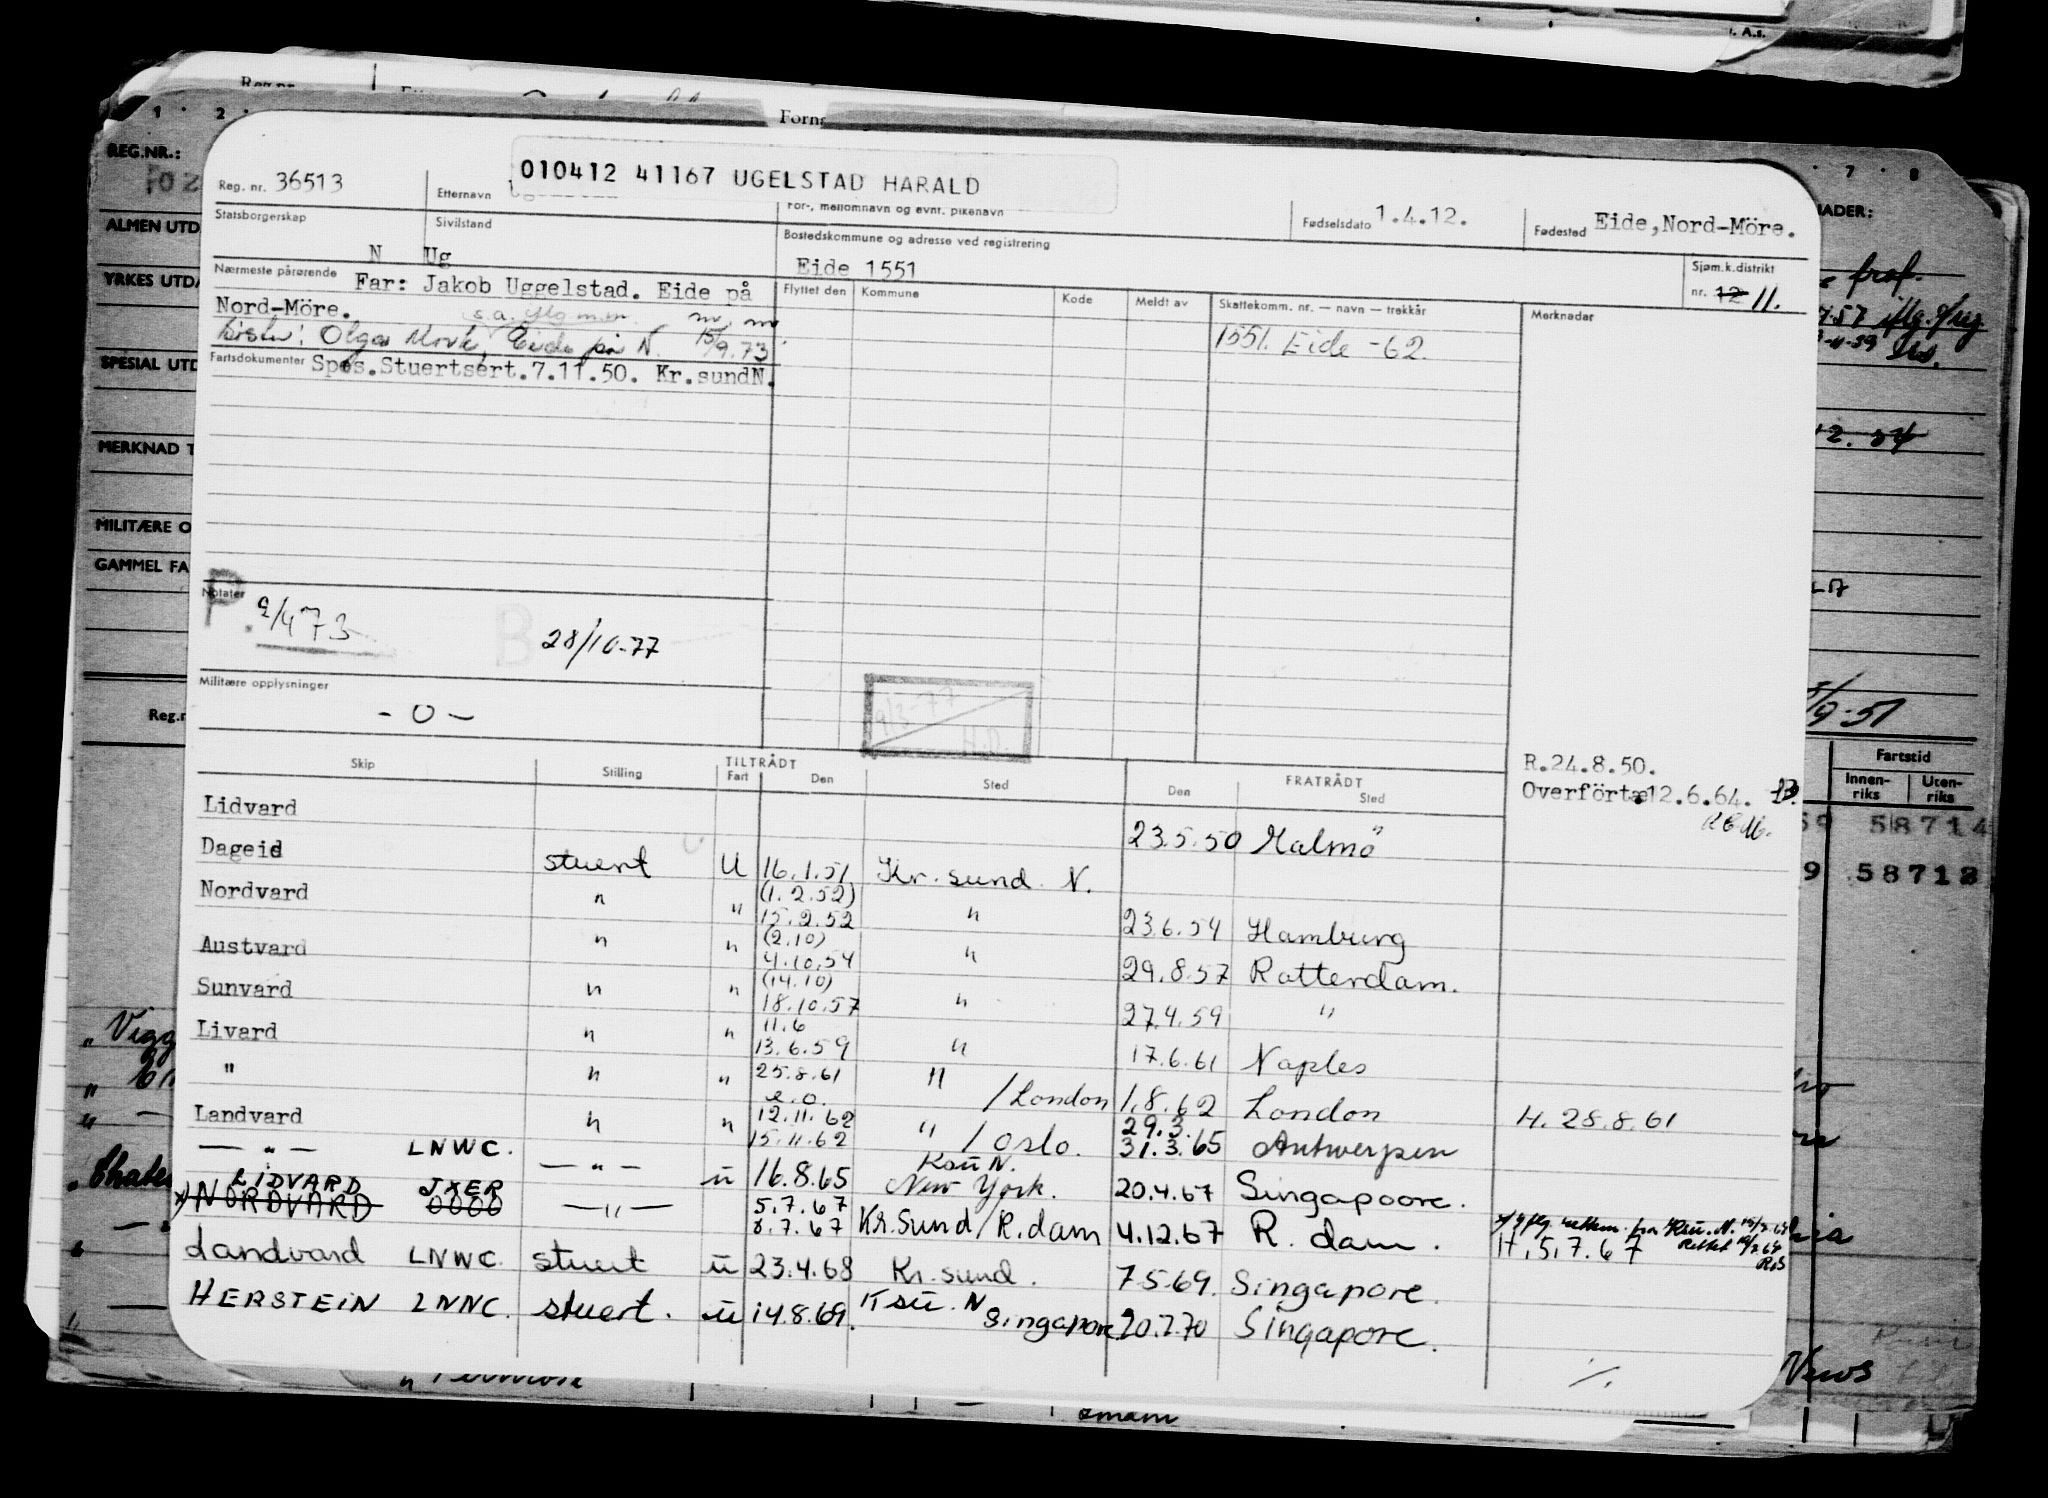 Reg. nr. 36513 Etternavn 010412 41167 UGELSTAD HARALD
For-, mellomnavn og evnt. pikenavn Fødselsdato 1.4.12. Fødested Eide, Nord-Möre.
Statsborgerskap N Sivilstand Ug
Bostedskommune og adresse ved registrering Eide 1551
Sjøm.k.distrikt nr. 12 11.
Nærmeste pårørende Far: Jakob Uggelstad. Eide på
Nord-Möre.
Olga Eide på N. 15/9.73
Fartsdokumenter Spes.Stuertsert.7.11.50. Kr.sundN.
Flyttet den Kommune Kode Meldt av Skattekomm. nr. — navn — trekkår Merknader
1551. Eide -62.
Notater
P. 2/473
B 28/10-77
Militære opplysninger
- 0 -
9/3-77 H.D.
R.24.8.50.
Overfört 12.6.64.
Skip Stilling TILTRÅDT Fart Den Sted FRATRÅDT Den Sted
Lidvard 23.5.50 Malmö
Dageid stuert U 16.1.51 Kr. sund. N.
Nordvard " " (1.2.52) 15.2.52 " 23.6.54 Hamburg
Austvard " " (2.10) 4.10.54 " 29.8.57 Rotterdam.
Sunvard " " (14.10) 18.10.57 " 27.4.59 "
Livard " " 11.6 13.6.59 " 17.6.61 Naples
" " " 25.8.61 " /London 1.8.62 London H. 28.8.61
Landvard " " 12.11.62 15.11.62 " / Oslo. 29.3. 31.3.65 Antwerpen
— " — LNWC. — " — u 16.8.65 Ksu N. New York. 20.4.67 Singapoore.
LIDVARD JXER
x) NORDVARD 0000 — " — 5.7.67 8.7.67 Kr.Sund/R.dam 4.12.67 R. dam. H. 5.7.67
Landvard LNWC. stuert u 23.4.68 Kr. sund. 7-5-69. Singapore.
HERSTEIN LNNC. stuert. u 14.8.69. Ksu. N Singapore 20.7.70 Singapore.
./.
REG.NR.:
ALMEN UTD
YRKES UTDA
SPESIAL UTD
MERKNAD T
MILITÆRE O
GAMMEL FA
Reg.n
Fartstid
Innen-riks Uten-riks
58714
9 58713